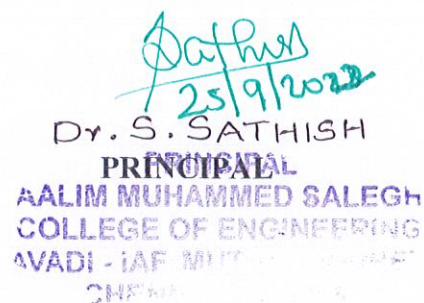 Sathish
25/9/2022
Dr. S. SATHISH
PRINCIPAL
PRINCIPAL
AALIM MUHAMMED SALEGH
COLLEGE OF ENGINEERING
AVADI - IAF